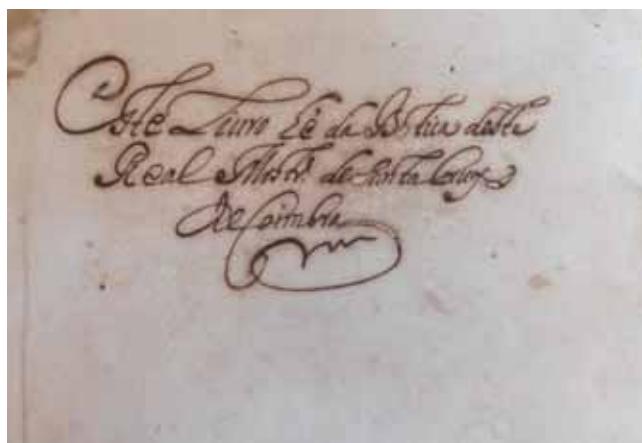 Este Liuro hé da Botica deste
Real Mostrº de Santa Cruz
de Coimbra